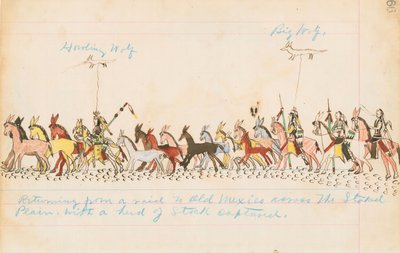 66
Howling Wolf
Big Wolf.
Returning from a raid to Old Mexico across The Staked
Plain. With a herd of Stock Captured.